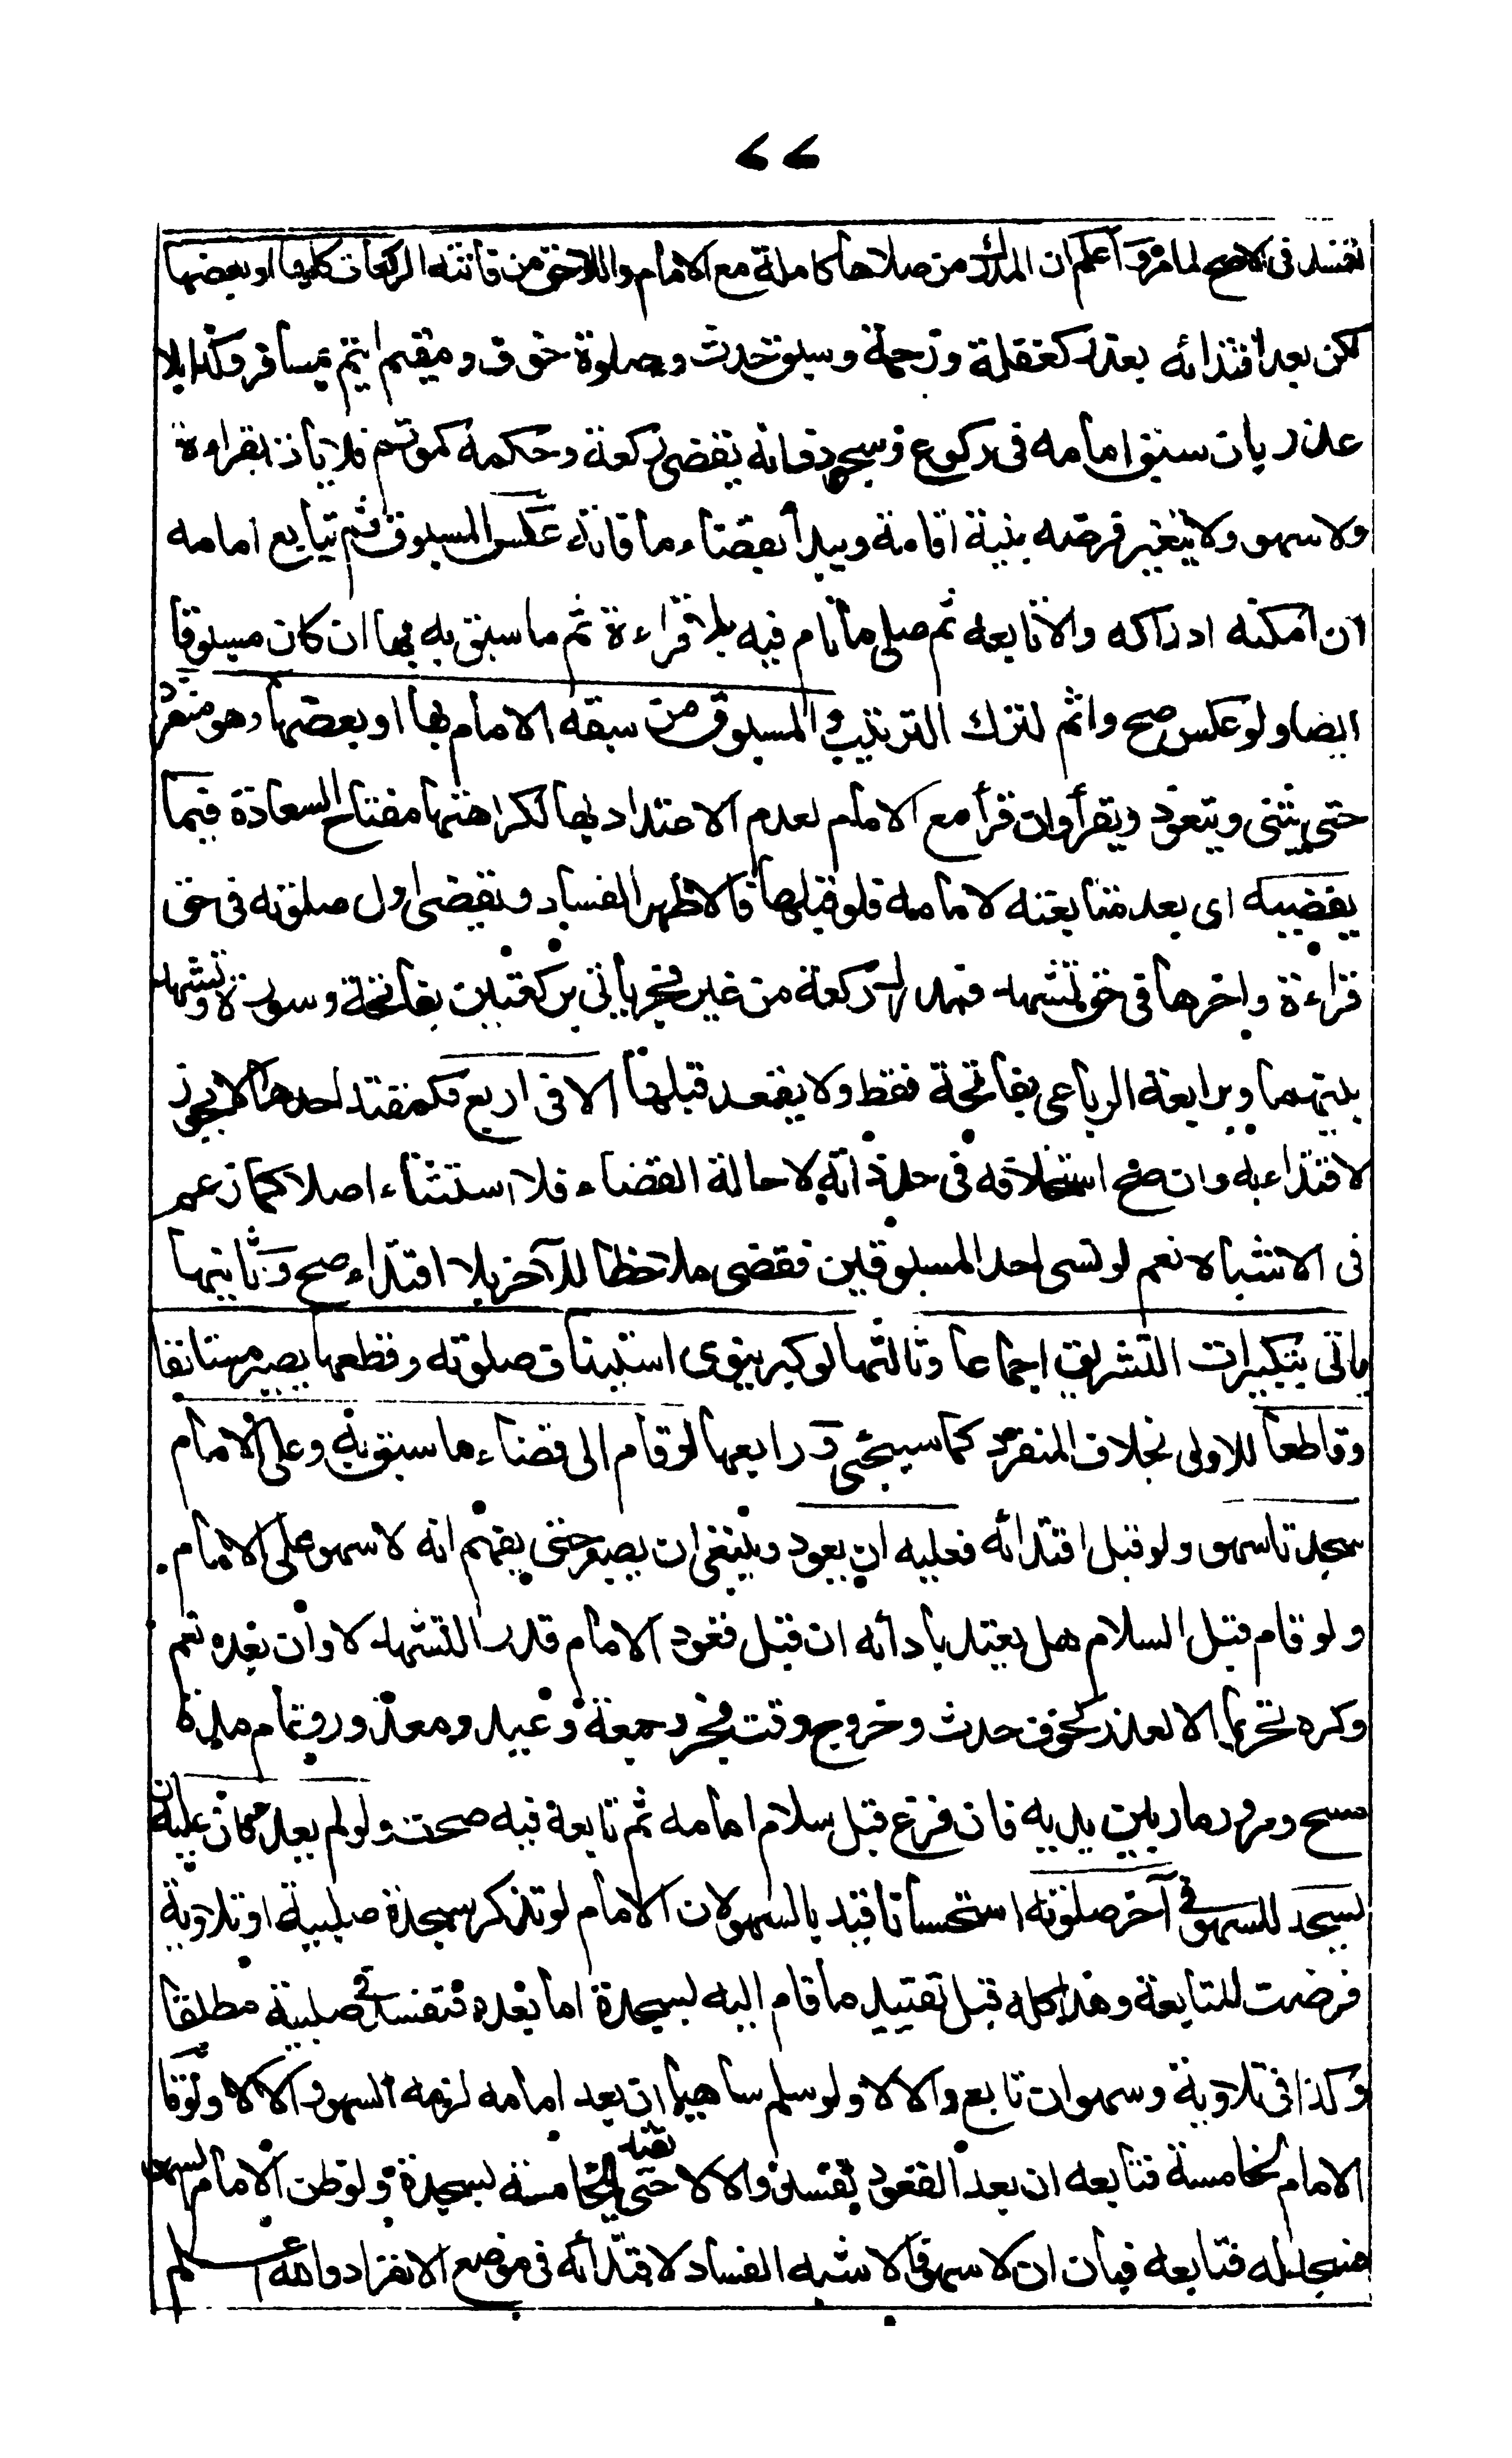 ٧٧
تفسد فى الاصح لما مر و اعلم ان المدرك من صلاها كاملة مع الامام واللاحق من فاتته الركعات كلها او بعضها
لكن بعد اقتدائه بعذر كغفلة وزحمة وسبق حدث وصلوة خوف ومقيم ائتم بمسافر وكذا بلا
عذر بان سبق امامه فى ركوع وسجود فانه يقضى ركعة وحكمه كمؤتم فلا يأت بقراءة
ولا سهو ولا يتغير فرضه بنية اقامة ويبدأ بقضاء ما فاته عكس المسبوق ثم يتابع امامه
ان امكنه ادراكه والا تابعه ثم صلى ما نام فيه بلا قراءة ثم ما سبق به بها ان كان مسبوقا
ايضا ولو عكس صح واثم لترك الترتيب والمسبوق من سبقه الامام بها او بعضها وهو منفرد
حتى يثنى ويتعوذ ويقرأ وان قرأ مع الامام لعدم الاعتداد بها لكراهتها مفتاح السعادة فيما
يقضيه اى بعد متابعته لامامه فلو قبلها فالاظهر الفساد ويقضى اول صلوته فى حق
قراءة واخرها فى حق تشهد فمدرك ركعة من غير فجر يأتى بركعتين بفاتحة وسورة وتشهد
بينهما وبرابعة الرباعى بفاتحة فقط ولا يقعد قبلها الا فى اربع فكمقتد احدها لا يجوز
لاقتداء به وان صح استخلافه فى حد ذاته لا حالة القضاء فلا استثناء اصلا كما زعم
فى الاشباه نعم لو نسى احد المسبوقين فقضى ملاحظا للآخر بلا اقتداء صح وثانيها
يأتى بتكبيرات التشريق اجماعا وثالثها لو كبر ينوى استيناف صلوته وقطعها يصير مستانفا
وقاطعا للاولى بخلاف المنفرد كما سيجئ ورابعها لو قام الى قضاء ما سبق به وعلى الامام
سجدتا سهو ولو قبل اقتدائه فعليه ان يعود وينبغى ان يصبر حتى يفهم انه لا سهو على الامام
ولو قام قبل السلام هل يعتد بادائه ان قبل قعود الامام قدر التشهد لا وان بعده نعم
وكره تحريما الا لعذر كخوف حدث وخروج وقت فجر وجمعة وعيد ومعذور وتمام مدة
مسح ومرور مار بين يديه فان فرغ قبل سلام امامه ثم تابعه فيه صحت ولو لم يعد كان عليه ان
يسجد للسهو فى آخر صلوته استحسانا قيد بالسهو لان الامام لو تذكر سجدة صلبية او تلاوية
فرضت المتابعة وهذا كله قبل تقييد ما قام اليه بسجدة اما بعده فتفسد فى صلبية مطلقا
وكذا فى تلاوية وسهو ان تابع والا لا ولو سلم ساهيا ان بعد امامه لزمه السهو والا لا ولو قا
الامام لخامسة فتابعه ان بعد القعود تفسد والا لا حتى يقيد الخامسة بسجدة ولو ظن الامام السهو
فسجد له فتابعه فبان ان لا سهو فالاشبه الفساد لاقتدائه فى موضع الانفراد والله اعلم